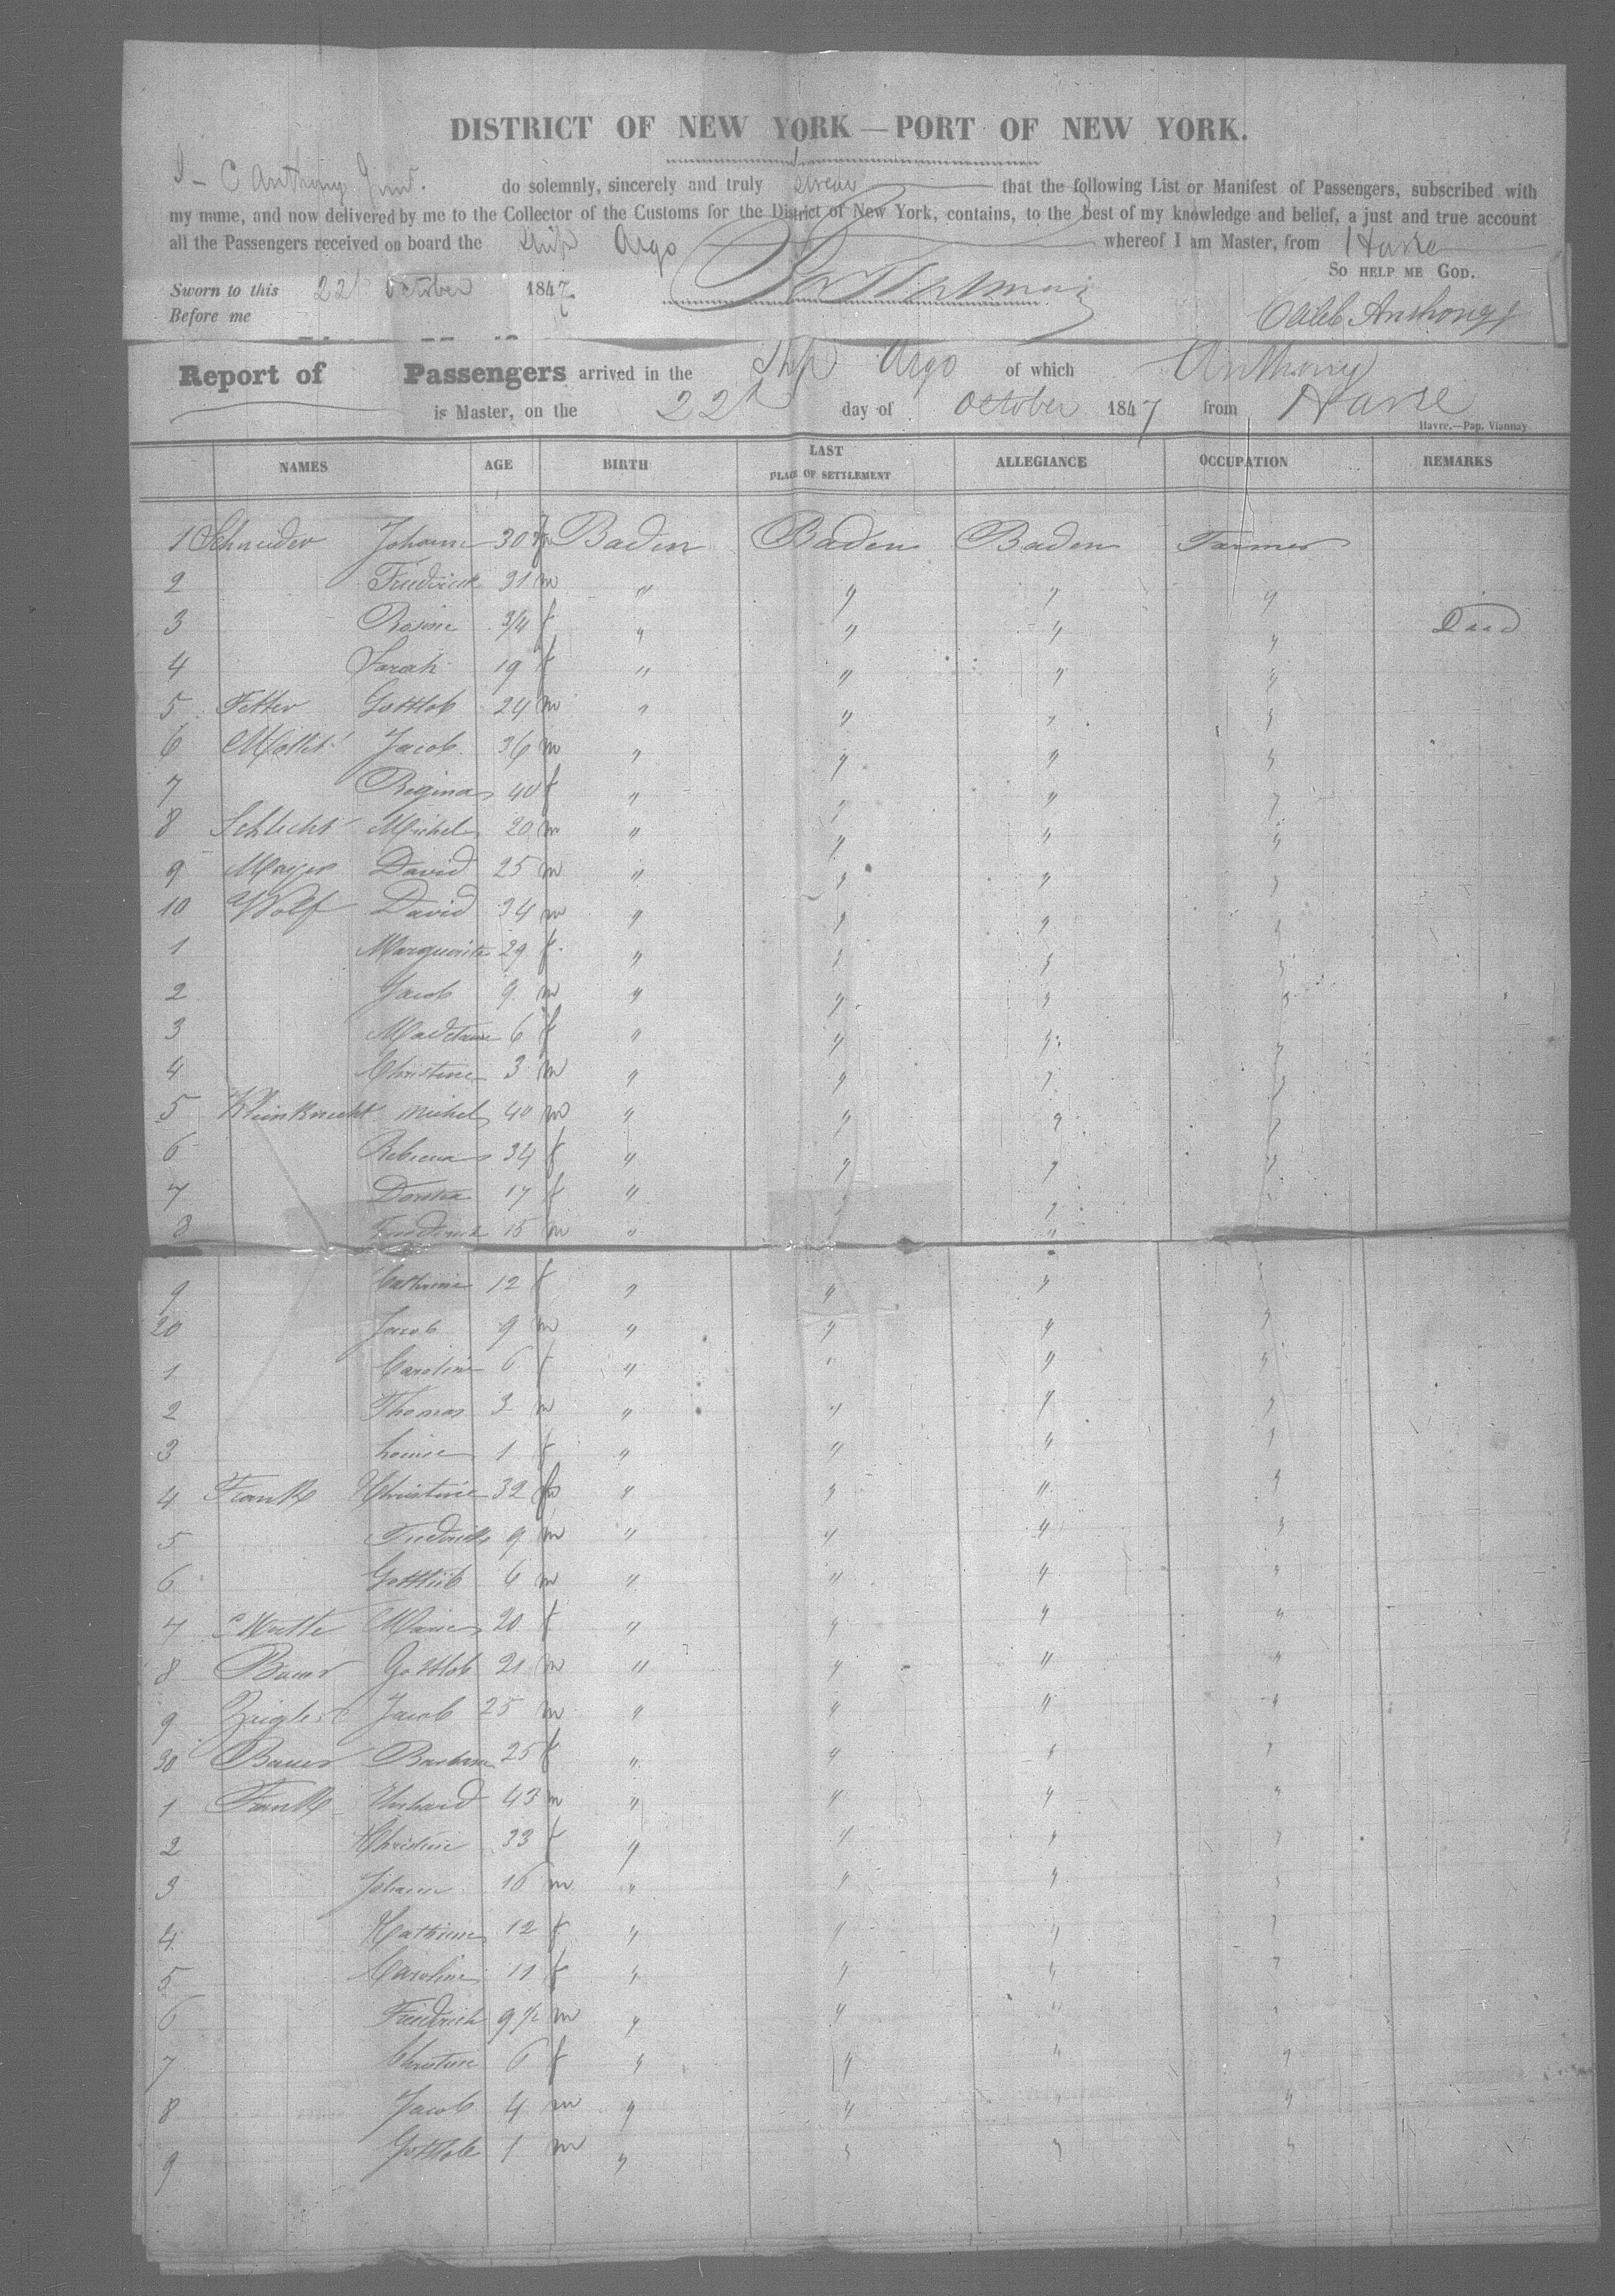 DISTRICT OF NEW YORK — PORT OF NEW YORK.
I - C Anthony Jun. do solemnly, sincerely and truly swear that the following List or Manifest of Passengers, subscribed with
my name, and now delivered by me to the Collector of the Customs for the District of New York, contains, to the best of my knowledge and belief, a just and true account
all the Passengers received on board the Ship Argo whereof I am Master, from Havre
SO HELP ME GOD.
Sworn to this 22d October 1847
Before me
Caleb Anthony Jr
Report of Passengers arrived in the Ship Argo of which Anthony
is Master, on the 22d day of October 1847 from Havre
Havre.—Pap. Viannay
NAMES AGE BIRTH LAST PLACE OF SETTLEMENT ALLEGIANCE OCCUPATION REMARKS
1 Schneider Johann 30 m Baden Baden Baden Farmer
2 Frederick 31 m " " " "
3 Rosine 3/4 f " " " " Died
4 Sarah 19 f " " " "
5 Fetter Gottlob 24 m " " " "
6 Jacob 36 m " " " "
7 Regina 40 f " " " "
8 Schlecht Michel 20 m " " " "
9 Mayer David 25 m " " " "
10 Wolf David 34 m " " " "
1 Marguerite 29 f " " " "
2 Jacob 9 m " " " "
3 6 f " " " "
4 Christine 3 m " " " "
5 Kleinknecht Michel 40 m " " " "
6 34 f " " " "
7 17 f " " " "
8 Frederick 15 m " " "
9 Catherine 12 f " " " "
20 Jacob 9 m " " " "
1 Caroline 6 f " " " "
2 Thomas 3 m " " " "
3 Louise 1 f " " " "
4 Frank Christine 32 f " " " "
5 Fredrick 9 m " " " "
6 Gottlieb 4 m " " " "
7 Marie 20 f " " " "
8 Bauer Gottlob 21 m " " " "
9 Zeigler Jacob 25 m " " " "
30 Bauer Barbara 25 f " " " "
1 Frank 43 m " " " "
2 Christine 33 f " " " "
3 Johann 16 m " " " "
4 Katherine 12 f " " " "
5 Caroline 11 f " " " "
6 Friedrich 9 1/2 m " " " "
7 Christine 6 f " " " "
8 Jacob 4 m " " " "
9 Gottlob 1 m " " " "